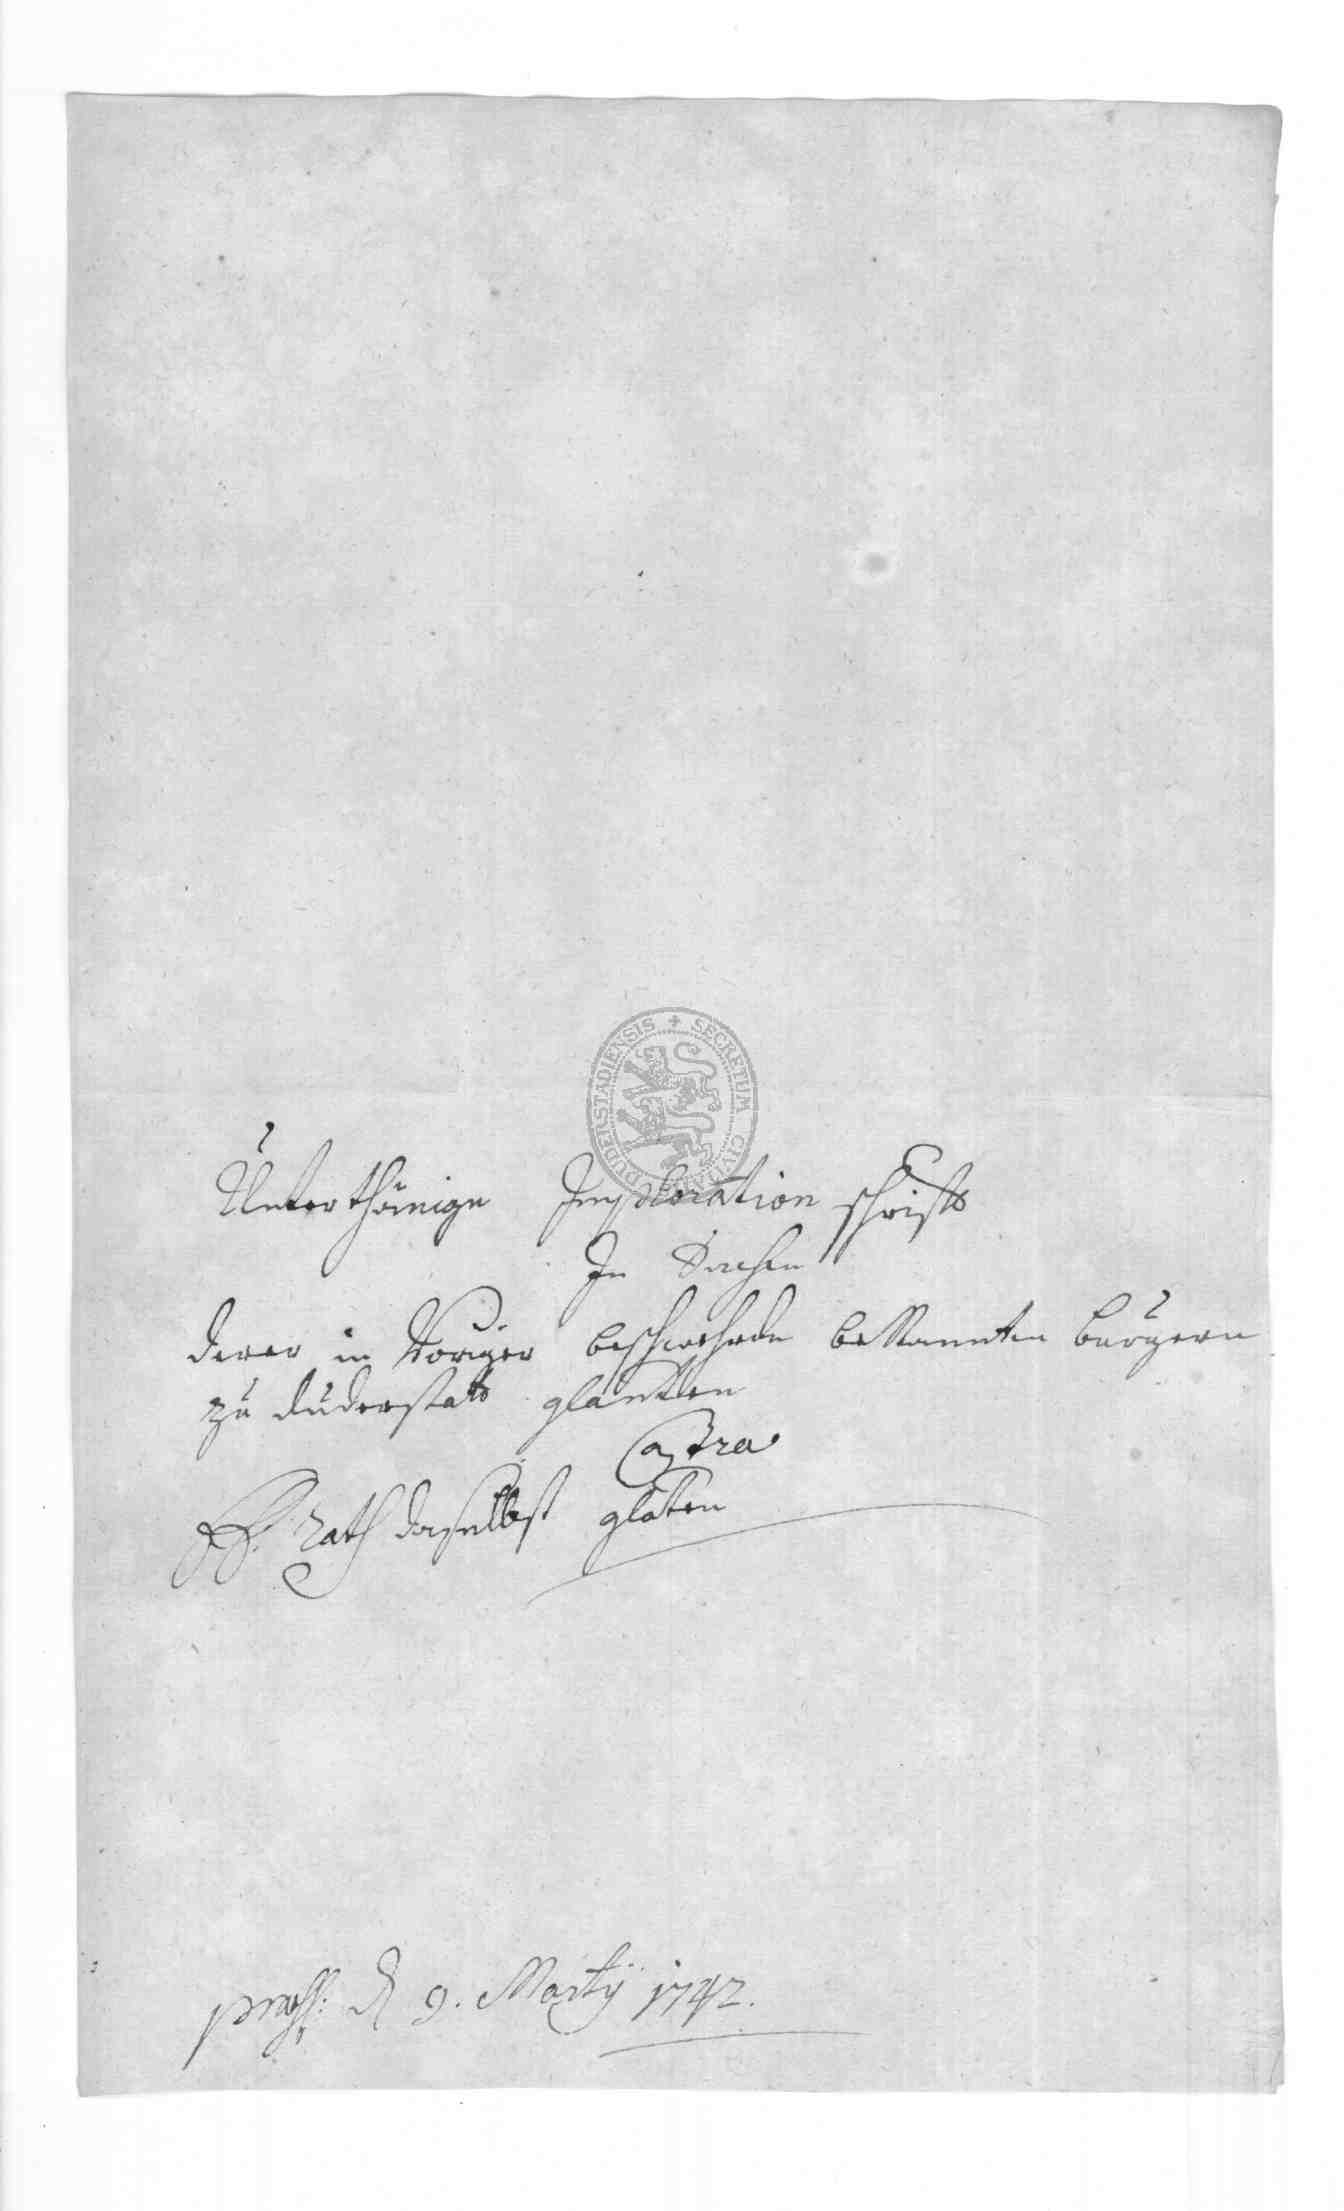 SECRETUM CIVITATIS DUDERSTADIENSIS
Unterthänige Imploration schrifft
In Sachen
derer in Voriger beschwehrde bekannten bürgern
zu duderstatt glantten
Contra
Rath daselbst glaten
praes: d 9. Martij 1742.